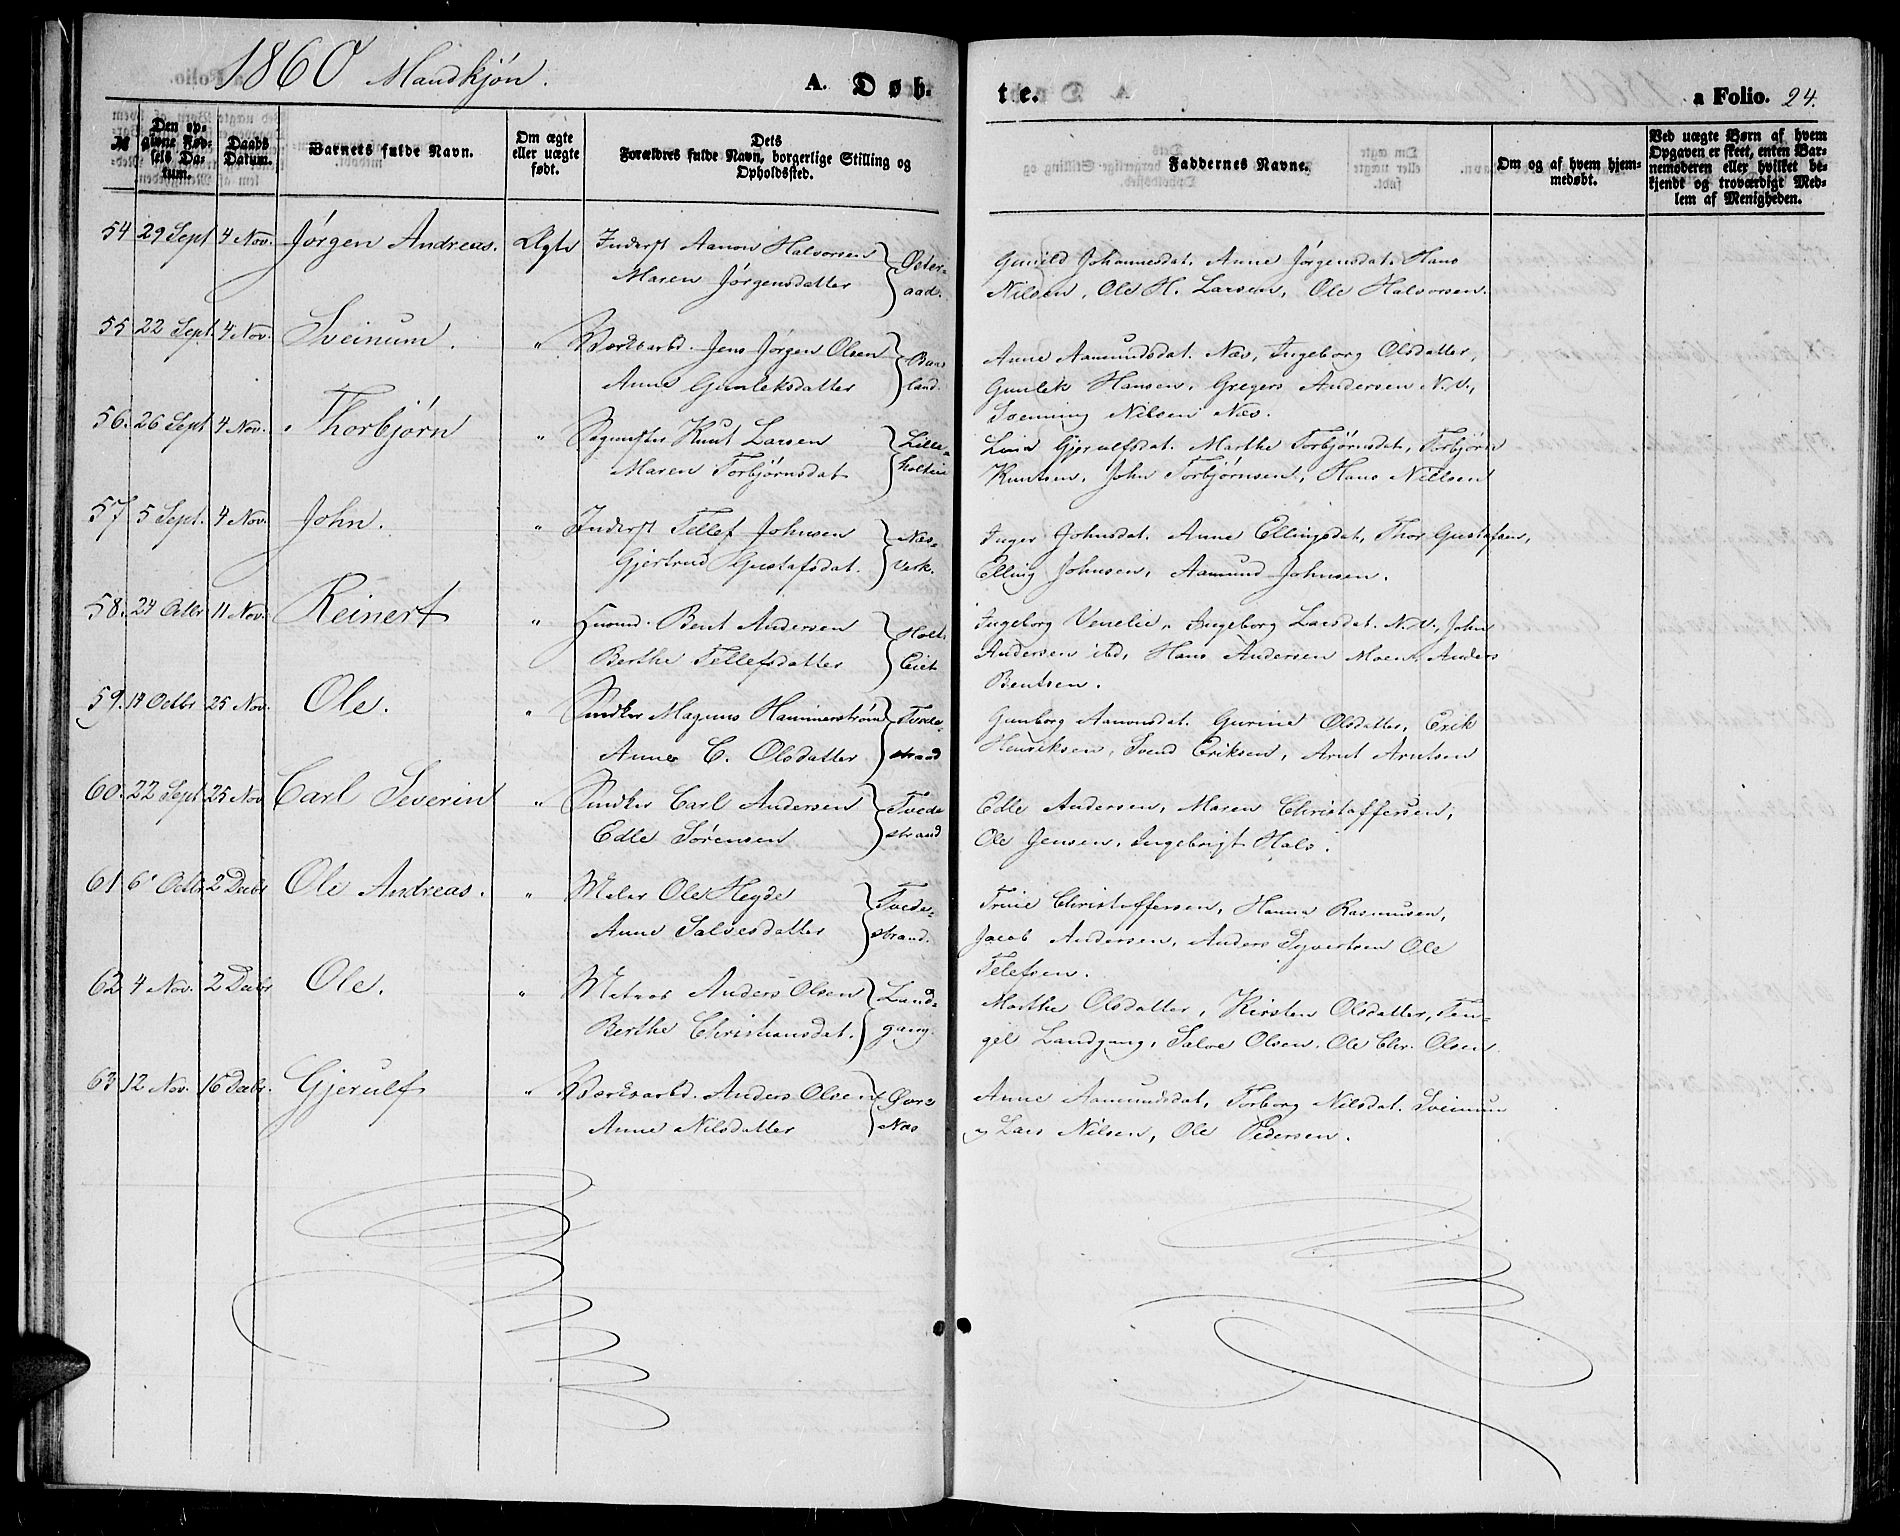 1860 Mandkjøn.
A. Døb-
te.
a Folio. 24.
№
Den op-
givne Fød-
sels Da-
tum.
Daabs
Datum.
Barnets fulde Navn.
Om ægte
eller uægte
født.
Dets
Forældres fulde Navn, borgerlige Stilling og
Opholdssted.
Faddernes Navne.
Om og af hvem hjem-
medøbt.
Ved uægte Børn af hvem
Opgaven er skeet, enten Bar-
nemoderen eller hvilket be-
kjendt og troværdigt Med-
lem af Menigheden.
54 29 Sept 4 Nov. Jørgen Andreas. Ægte Inderst Aanon Halvorsen Øster-
Maren Jørgensdatter aad.
Gunild Johannesdat. Anne Jørgensdat. Hans
Nilsen, Ole H. Larsen, Ole Halvorsen.
55 22 Sept. 4 Nov. Sveinum. " Værksarbd. Jens Jørgen Olsen Baas
Anne Gunleksdatter land.
Anne Aamundsdat. Næs, Ingeborg Olsdatter,
Gunlek Hansen, Gregers Andersen N.V.,
Svenning Nilsen Næs.
56. 26 Sept 4 Nov. Thorbjørn " Knut Larsen Lille-
Maren Torbjørnsdat holtene
Gjerulfsdat. Marthe Torbjørnsdat, Torbjørn
Knutsen, John Torbjørnsen, Hans Nielsen
57 5 Sept. 4 Nov. John. " Inderst Tellef Johnsen Næs-
Gjertrud Gustafsdat. Verk.
Inger Johnsdat. Anne Ellingsdat, Thor Gustafsen,
Elling Johnsen, Aamund Johnsen.
58. 24 Octbr 11 Nov. Reinert " Huusmd. Bent Andersen Holt.
Berthe Tellefsdatter Eiet
Ingeborg Venelie, Ingeborg Larsdat. N.V., John
Andersen ibd, Hans Andersen Moen, Anders
Bentsen.
59. 17 Octbr 25 Nov. Ole. " Snedker Magnus Hammerstrøm Tvede-
Anne C. Olsdatter strand
Gunborg Aanonsdat. Gurine Olsdatter, Erik
Henriksen, Svend Eriksen, Arnt Arntsen
60. 22 Sept 25 Nov Carl Severin " Snedker Carl Andersen Tvede
Edle Sørensen strand
Edle Andersen, Maren Christoffersen,
Ole Jensen, Ingebrigt Hals.
61 6 Octbr 2 Decbr Ole Andreas. " Maler Ole Hegde Tvede-
Anne Salvesdatter strand.
Trine Christoffersen, Hanna Rasmusen,
Jacob Andersen, Anders Syvertsen Ole
Telefsen.
62 4 Nov. 2 Decbr Ole. " Matros Anders Olsen Land-
Berthe Christiansdat. gang.
Marthe Olsdatter, Kirsten Olsdatter, Ten-
gel Landgang, Salve Olsen, Ole Chr. Olsen
63 12 Nov. 16 Decbr. Gjerulf " Værksarbd. Anders Olsen Øvre
Anne Nilsdatter Næs
Anne Aamundsdat, Torborg Nilsdat. Sveinum
og Lars Nilsen, Ole Pedersen.